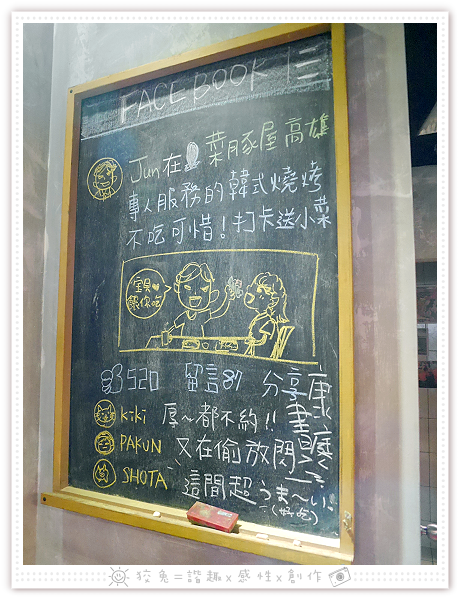 FACEBOOK
Jun在 菜豚屋高雄
專人服務的韓式燒烤
不吃可惜！打卡送小菜
寶貝❤
餵你吃
520 留言87 分享
KiKi 厚～都不約!!
PAKUN 又在偷放閃
SHOTA 這間超うま～い
(好吃)
狡兔=諧趣x感性x創作